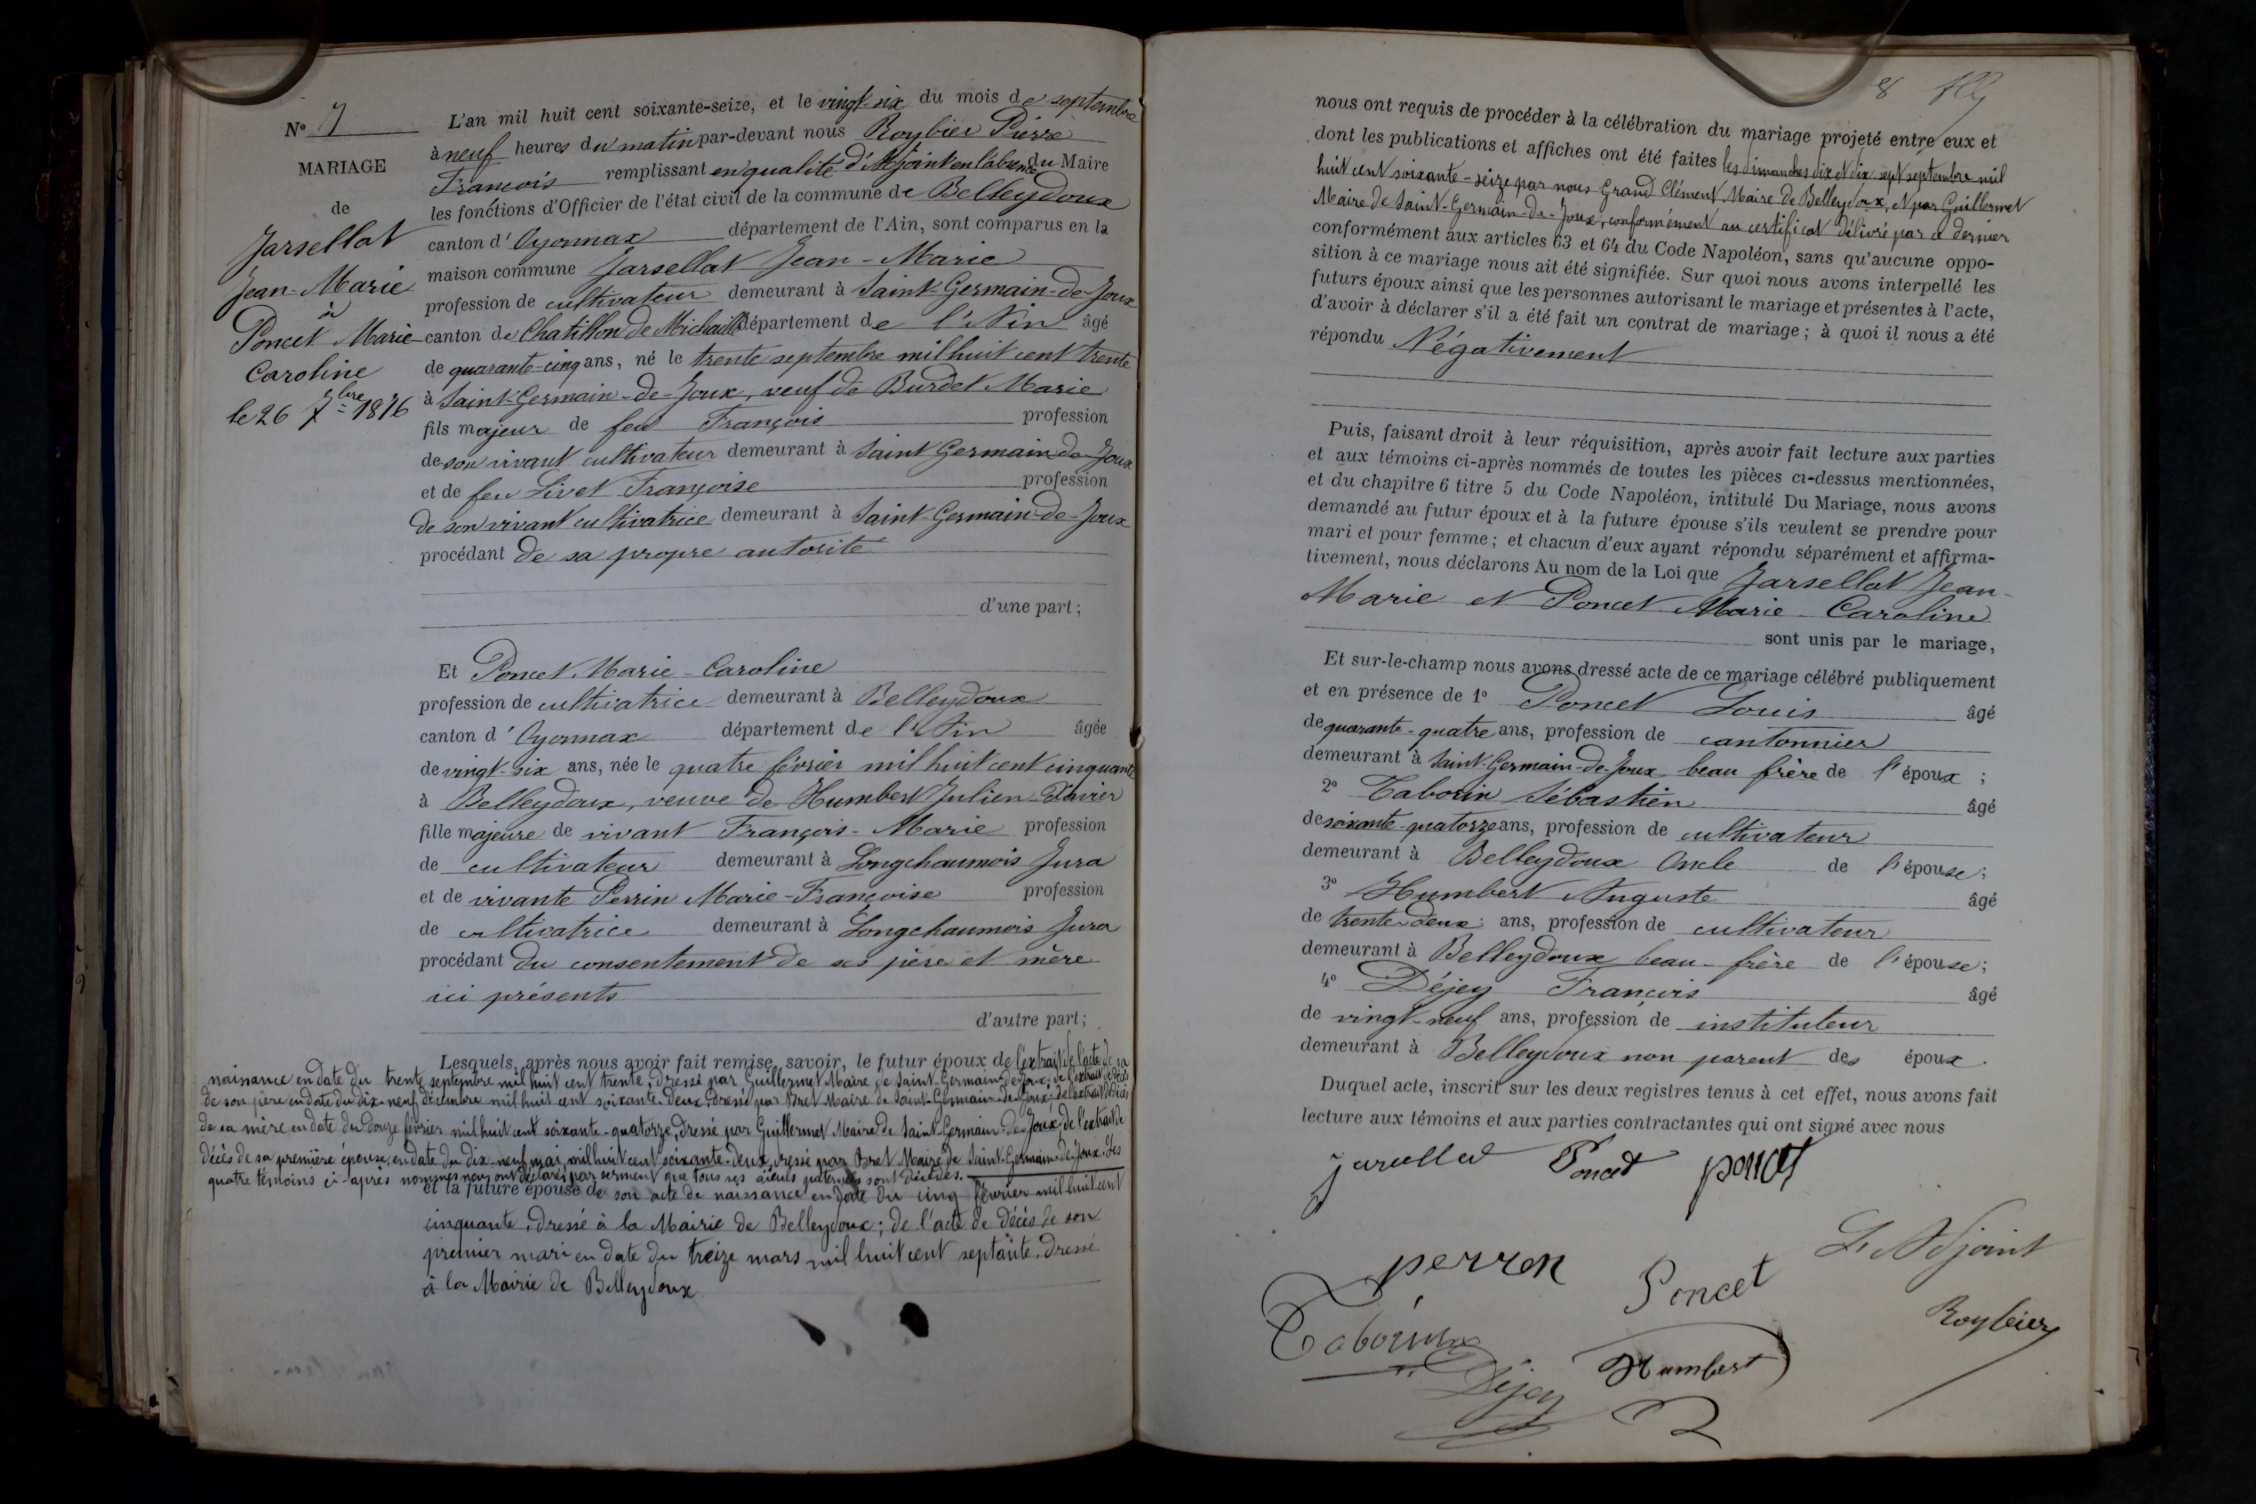 N° 7
MARIAGE
de
Jarsellat
Jean-Marie
à
Poncet Marie
Caroline
le 26 7bre 1876
L'an mil huit cent soixante-seize, et le vingt-six du mois de septembre
à neuf heures du matin par-devant nous Roybier Pierre
François remplissant en qualité d'Adjoint en l'absence du Maire
les fonctions d'Officier de l'état civil de la commune de Belleydoux
canton d'Oyonnax département de l'Ain, sont comparus en la
maison commune Jarsellat Jean-Marie
profession de cultivateur demeurant à Saint-Germain-de-Joux
canton de Chatillon de Michaille département de l'Ain âgé
de quarante-cinq ans, né le trente septembre mil huit cent trente
à Saint-Germain-de-Joux, veuf de Burdet Marie
fils majeur de feu François profession
de son vivant cultivateur demeurant à Saint Germain-de-Joux
et de feu Livet Françoise profession
de son vivant cultivatrice demeurant à Saint-Germain-de-Joux
procédant de sa propre autorité
d'une part;
Et Poncet Marie-Caroline
profession de cultivatrice demeurant à Belleydoux
canton d'Oyonnax département de l'Ain âgée
de vingt-six ans, née le quatre février mil huit cent cinquante
à Belleydoux, veuve de Humbert Julien
fille majeure de vivant François-Marie profession
de cultivateur demeurant à Longchaumois Jura
et de vivante Perrin Marie-Françoise profession
de cultivatrice demeurant à Longchaumois Jura
procédant du consentement de ses père et mère
ici présents
d'autre part;
Lesquels, après nous avoir fait remise, savoir, le futur époux de l'extrait de l'acte de sa
naissance en date du trente septembre mil huit cent trente, dressé par Guillermet Maire de Saint-Germain-de-Joux; de l'extrait de décès
de son père en date du dix-neuf décembre mil huit cent soixante-deux, dressé par Bret Maire de Saint-Germain-de-Joux; de l'extrait de décès
de sa mère en date du douze février mil huit cent soixante-quatorze, dressé par Guillermet Maire de Saint-Germain-de-Joux; de l'extrait de
décès de sa première épouse, en date du dix-neuf mai, mil huit cent soixante-deux, dressé par Bret Maire de Saint-Germain-de-Joux. Les
quatre témoins ci-après nommés nous ont déclaré par serment que tous ses aïeuls paternels sont décédés.
et la future épouse de son acte de naissance en date du cinq février mil huit cent
cinquante, dressé à la Mairie de Belleydoux; de l'acte de décès de son
premier mari en date du treize mars mil huit cent septante, dressé
à la Mairie de Belleydoux
8
nous ont requis de procéder à la célébration du mariage projeté entre eux et
dont les publications et affiches ont été faites les dimanches dix et dix sept septembre mil
huit cent soixante-seize par nous Grand Clément Maire de Belleydoux, et par Guillermet
Maire de Saint-Germain-de-Joux, conformément au certificat délivré par ce dernier
conformément aux articles 63 et 64 du Code Napoléon, sans qu'aucune oppo-
sition à ce mariage nous ait été signifiée. Sur quoi nous avons interpellé les
futurs époux ainsi que les personnes autorisant le mariage et présentes à l'acte,
d'avoir à déclarer s'il a été fait un contrat de mariage; à quoi il nous a été
répondu Négativement
Puis, faisant droit à leur réquisition, après avoir fait lecture aux parties
et aux témoins ci-après nommés de toutes les pièces ci-dessus mentionnées,
et du chapitre 6 titre 5 du Code Napoléon, intitulé Du Mariage, nous avons
demandé au futur époux et à la future épouse s'ils veulent se prendre pour
mari et pour femme; et chacun d'eux ayant répondu séparément et affirma-
tivement, nous déclarons Au nom de la Loi que Jarsellat Jean-
Marie et Poncet Marie-Caroline
sont unis par le mariage,
Et sur-le-champ nous avons dressé acte de ce mariage célébré publiquement
et en présence de 1° Poncet Louis âgé
de quarante-quatre ans, profession de cantonnier
demeurant à Saint-Germain-de-Joux beau frère de l'époux;
2° Taborin Sébastien âgé
de soixante-quatorze ans, profession de cultivateur
demeurant à Belleydoux Oncle de l'épouse;
3° Humbert Auguste âgé
de trente deux ans, profession de cultivateur
demeurant à Belleydoux beau-frère de l'épouse;
4° Déjey François âgé
de vingt-neuf ans, profession de instituteur
demeurant à Belleydoux non parent des époux.
Duquel acte, inscrit sur les deux registres tenus à cet effet, nous avons fait
lecture aux témoins et aux parties contractantes qui ont signé avec nous
jarsellat Poncet poncet
perren Poncet L'Adjoint
Taborin Roybier
Déjey Humbert